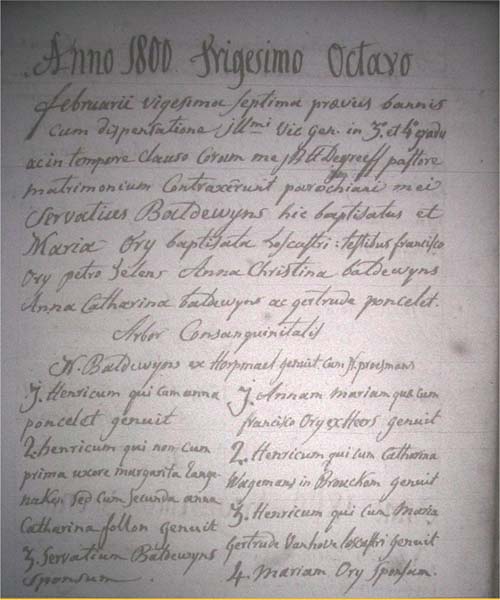 Anno 1800 Trigesimo Octavo
februarii vigesima septima prœviis bannis
cum dispensatione jll:mi Vic Gen. in 3:o et 4:o gradu
ac in tempore clauso Coram me Degreeff pastore
matrimonium Contraxêrunt parochiani mei
Servatius Baldewyns hic baptisatus et
Maria Ory baptisata Loscastri: testibus francisco
Ory petro Jelens Anna Christina baldewyns
Anna Catharina baldewyns ac gertrude poncelet.
Arbor Consanguinitatis
N. Baldewyns ex Horpmael genuit cum N. proesmans
1. Henricum qui cum anna
poncelet genuit
2. henricum qui non cum
prima uxore margarita Lange
naken sed cum secunda anna
Catharina follon genuit
3. Servatium Baldewyns
sponsum.
1. Annam mariam quæ cum
francisko Ory ex Heers genuit
2. Henricum qui cum Catharina
Wagemans in Brouckom genuit
3. Henricum qui cum Maria
Gertrude Vanhove Loscastri genuit
4. Mariam Ory sponsam.